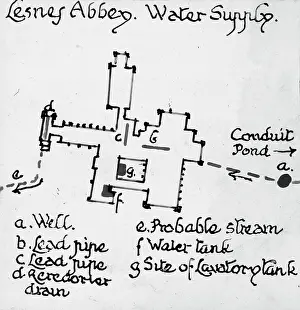 Lesnes Abbey. Water Supply.
d
c
G
Conduit
Pond →
a.
g.
e
f
a. Well.
b. Lead pipe
c Lead pipe
d Reredorter
drain
e. Probable stream
f Water tank
g Site of Lavatory tank